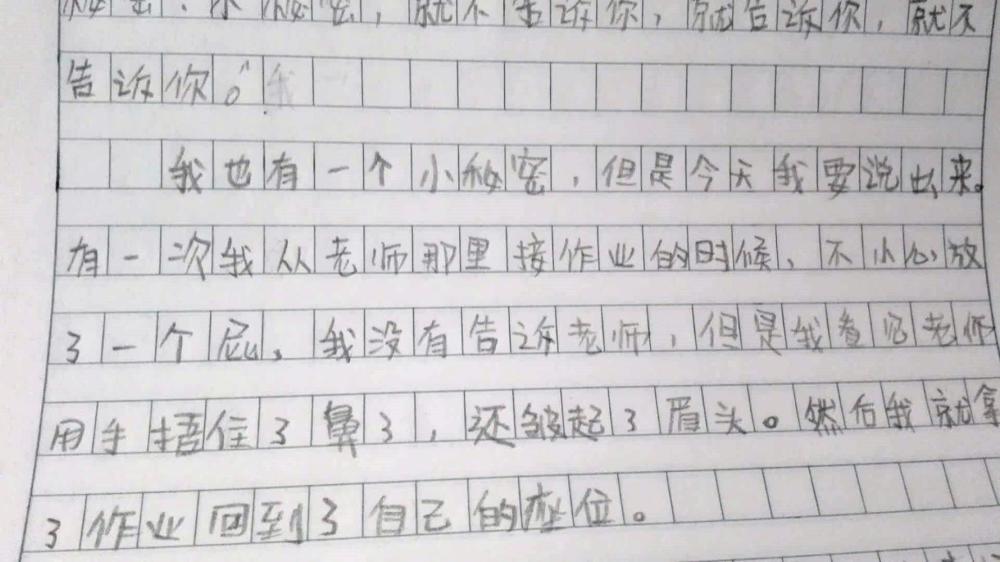 秘密，小秘密，就不告诉你，就告诉你，就不
告诉你。”
我也有一个小秘密，但是今天我要说出来。
有一次我从老师那里接作业的时候、不小心放
了一个屁，我没有告诉老师，但是我看见老师
用手捂住了鼻子，还皱起了眉头。然后我就拿
了作业回到了自己的座位。